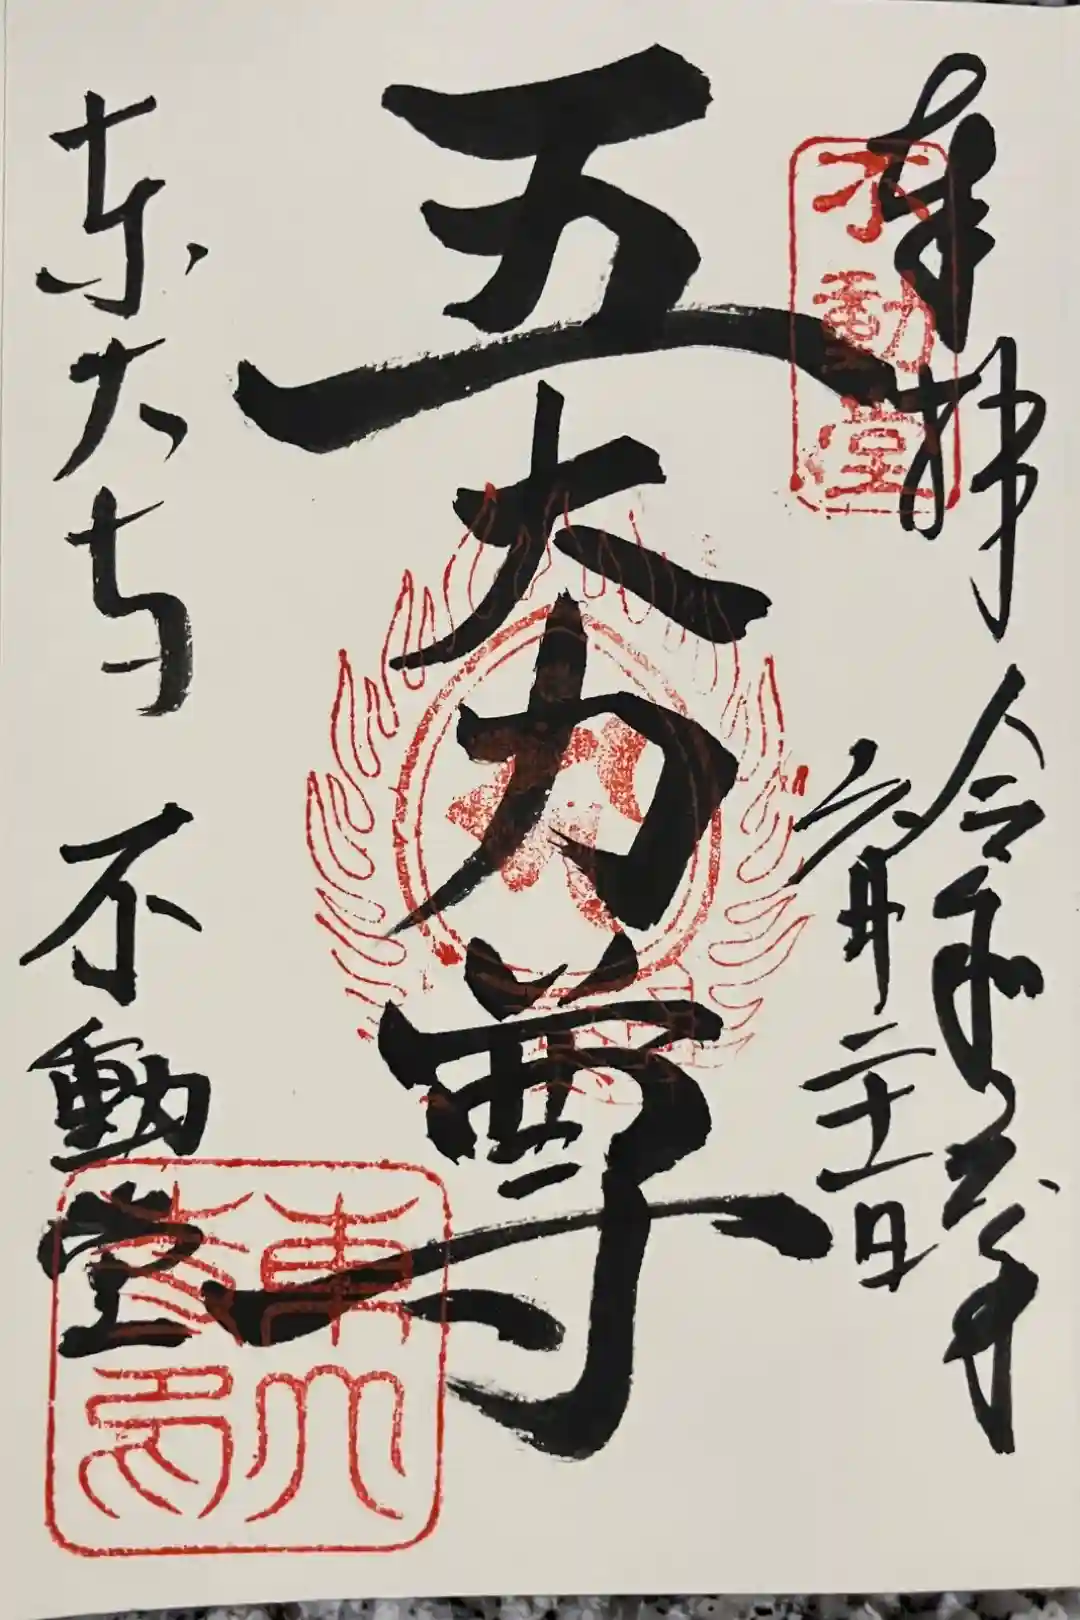 奉拝
令和六年
六月二十一日
不動堂
五大力尊
東大寺 不動堂